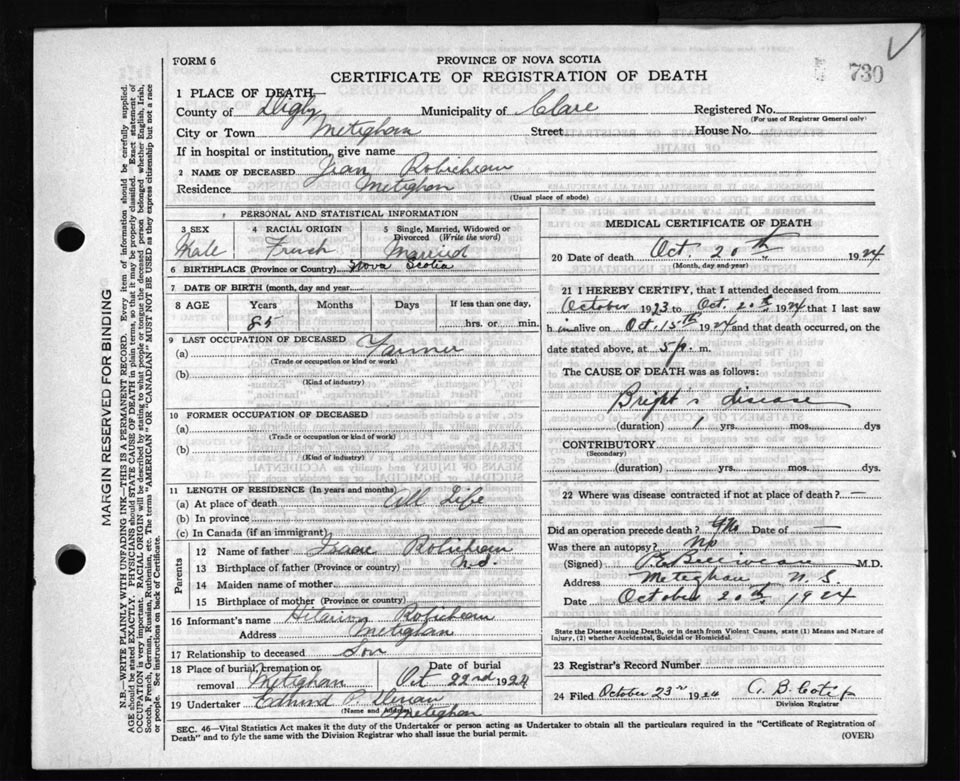 FORM 6
PROVINCE OF NOVA SCOTIA
CERTIFICATE OF REGISTRATION OF DEATH
730
1 PLACE OF DEATH—
County of Digby Municipality of Clare Registered No.
(For use of Registrar General only)
City or Town Metighan Street House No.
If in hospital or institution, give name
2 NAME OF DECEASED Jean Robicheau
Residence Metighan
(Usual place of abode)
PERSONAL AND STATISTICAL INFORMATION
3 SEX 4 RACIAL ORIGIN 5 Single, Married, Widowed or Divorced (Write the word)
Male French Married
6 BIRTHPLACE (Province or Country) Nova Scotia
7 DATE OF BIRTH (month, day and year)
8 AGE Years Months Days If less than one day,
85 hrs. or min.
9 LAST OCCUPATION OF DECEASED
(a) Farmer
(Trade or occupation or kind or work)
(b)
(Kind of industry)
10 FORMER OCCUPATION OF DECEASED
(a)
(Trade or occupation or kind of work)
(b)
(Kind of industry)
11 LENGTH OF RESIDENCE (In years and months)
(a) At place of death All Life
(b) In province
(c) In Canada (if an immigrant)
Parents
12 Name of father Isaac Robicheau
13 Birthplace of father (Province or country) N.S.
14 Maiden name of mother
15 Birthplace of mother (Province or country)
16 Informant's name Hilarion Robicheau
Address Metighan
17 Relationship to deceased Son
18 Place of burial, cremation or removal Metighan Date of burial Oct 22nd 1924
19 Undertaker Edmund P.
(Name and Address) Metighan
MEDICAL CERTIFICATE OF DEATH
20 Date of death Oct. 20th 1924
(Month, day and year)
21 I HEREBY CERTIFY, that I attended deceased from
October 1923 to Oct. 20th 1924 that I last saw
h im alive on Oct. 15th 1924 and that death occurred, on the
date stated above, at 5 p. m.
The CAUSE OF DEATH was as follows:
Bright's disease
(duration) 1 yrs. mos. dys
CONTRIBUTORY
(Secondary)
(duration) yrs. mos. dys.
22 Where was disease contracted if not at place of death? —
Did an operation precede death? No Date of —
Was there an autopsy? No
(Signed) P.E. Belliveau M.D.
Address Meteghan N.S.
Date October 20th, 1924
State the Disease causing Death, or in death from Violent Causes, state (1) Means and Nature of
Injury, (2) whether Accidental, Suicidal or Homicidal.
23 Registrar's Record Number
24 Filed October 23rd 1924
Division Registrar
SEC. 46—Vital Statistics Act makes it the duty of the Undertaker or person acting as Undertaker to obtain all the particulars required in the "Certificate of Registration of
Death" and to fyle the same with the Division Registrar who shall issue the burial permit.
(OVER)
MARGIN RESERVED FOR BINDING
N.B.—WRITE PLAINLY WITH UNFADING INK—THIS IS A PERMANENT RECORD. Every item of information should be carefully supplied.
AGE should be stated EXACTLY. PHYSICIANS should STATE CAUSE OF DEATH in plain terms, so that it may be properly classified. Exact statement of
OCCUPATION is very important. RACIAL ORIGIN will be described by stating to what people or tongue the deceased person belonged whether English, Irish,
Scotch, French, German, Russian, Ruthenian, etc. The terms "AMERICAN" OR "CANADIAN" MUST NOT BE USED as they express citizenship but not a race
or people. See instructions on back of Certificate.